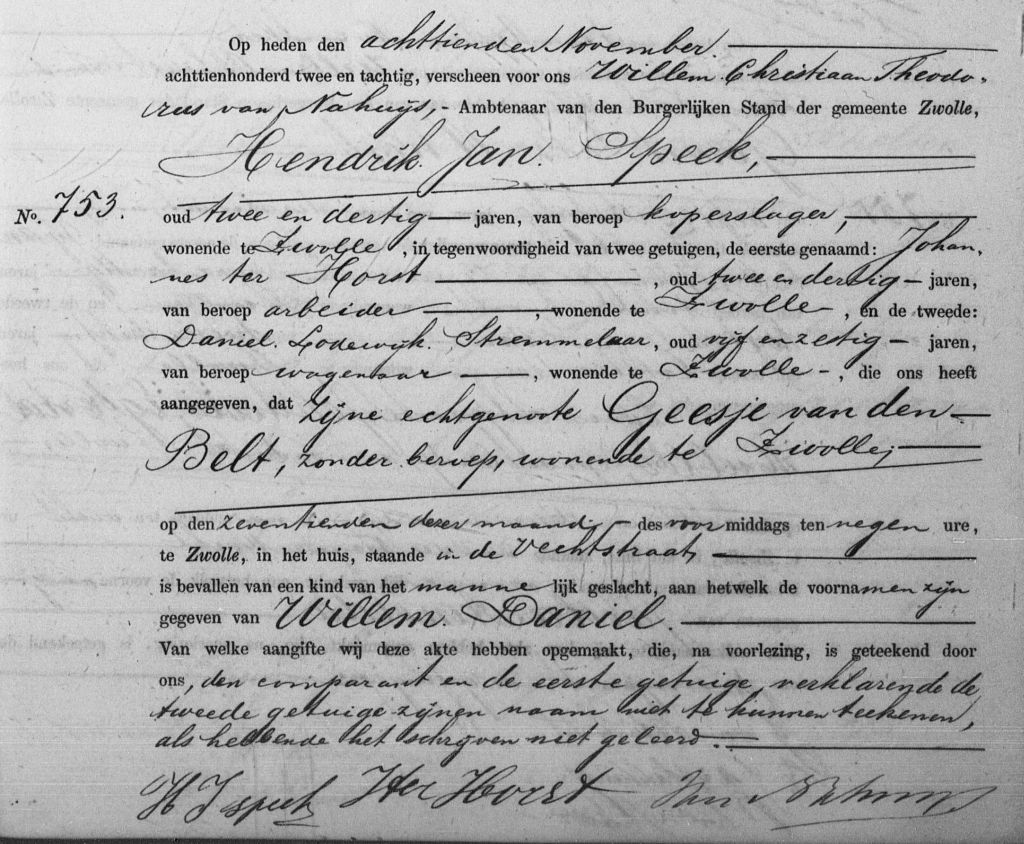 Op heden den achttienden November
achttienhonderd twee en tachtig, verscheen voor ons Willem Christiaan Theodo-
rus van Nahuijs, - Ambtenaar van den Burgerlijken Stand der gemeente Zwolle,
Hendrik Jan Speek,
No. 753.
oud twee en dertig jaren, van beroep koperslager,
wonende te Zwolle, in tegenwoordigheid van twee getuigen, de eerste genaamd: Johan,
nes ter Horst, oud twee en dertig - jaren,
van beroep arbeider, wonende te Zwolle -, en de tweede:
Daniel Lodewijk Stremmelaar, oud vijf en zestig - jaren,
van beroep wagenaar, wonende te Zwolle -, die ons heeft
aangegeven, dat zijne echtgenoote Geesje van den
Belt, zonder beroep, wonende te Zwolle,
op den zeventienden dezer maand, des voormiddags ten negen ure,
te Zwolle, in het huis, staande in de Vechtstraat,
is bevallen van een kind van het mannelijk geslacht, aan hetwelk de voornamen zijn
gegeven van Willem Daniel.
Van welke aangifte wij deze akte hebben opgemaakt, die, na voorlezing, is geteekend door
ons, den comparant en de eerste getuige, verklarende de
tweede getuige zijnen naam niet te kunnen teekenen,
als hebbende het schrijven niet geleerd.
H J Speek HterHorst